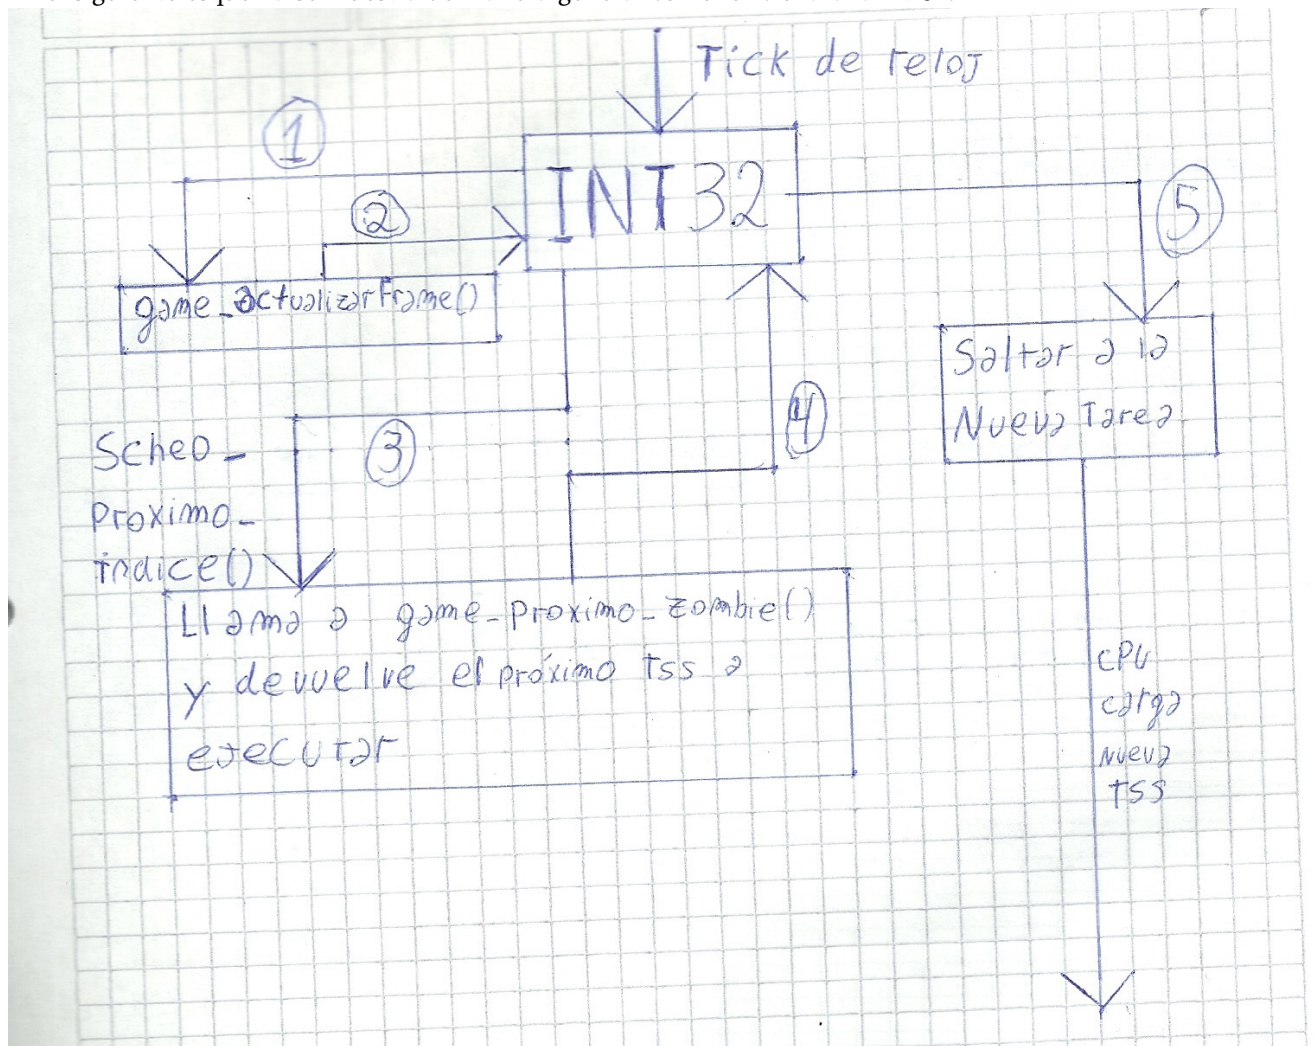 Tick de reloj
1
INT 32
5
2
game_actualizarFrame()
Saltar a la
Nueva Tarea
4
3
Sched_
Proximo_
indice()
Llama a game_proximo_zombie()
y devuelve el próximo tss a
ejecutar
CPU
carga
nueva
tss